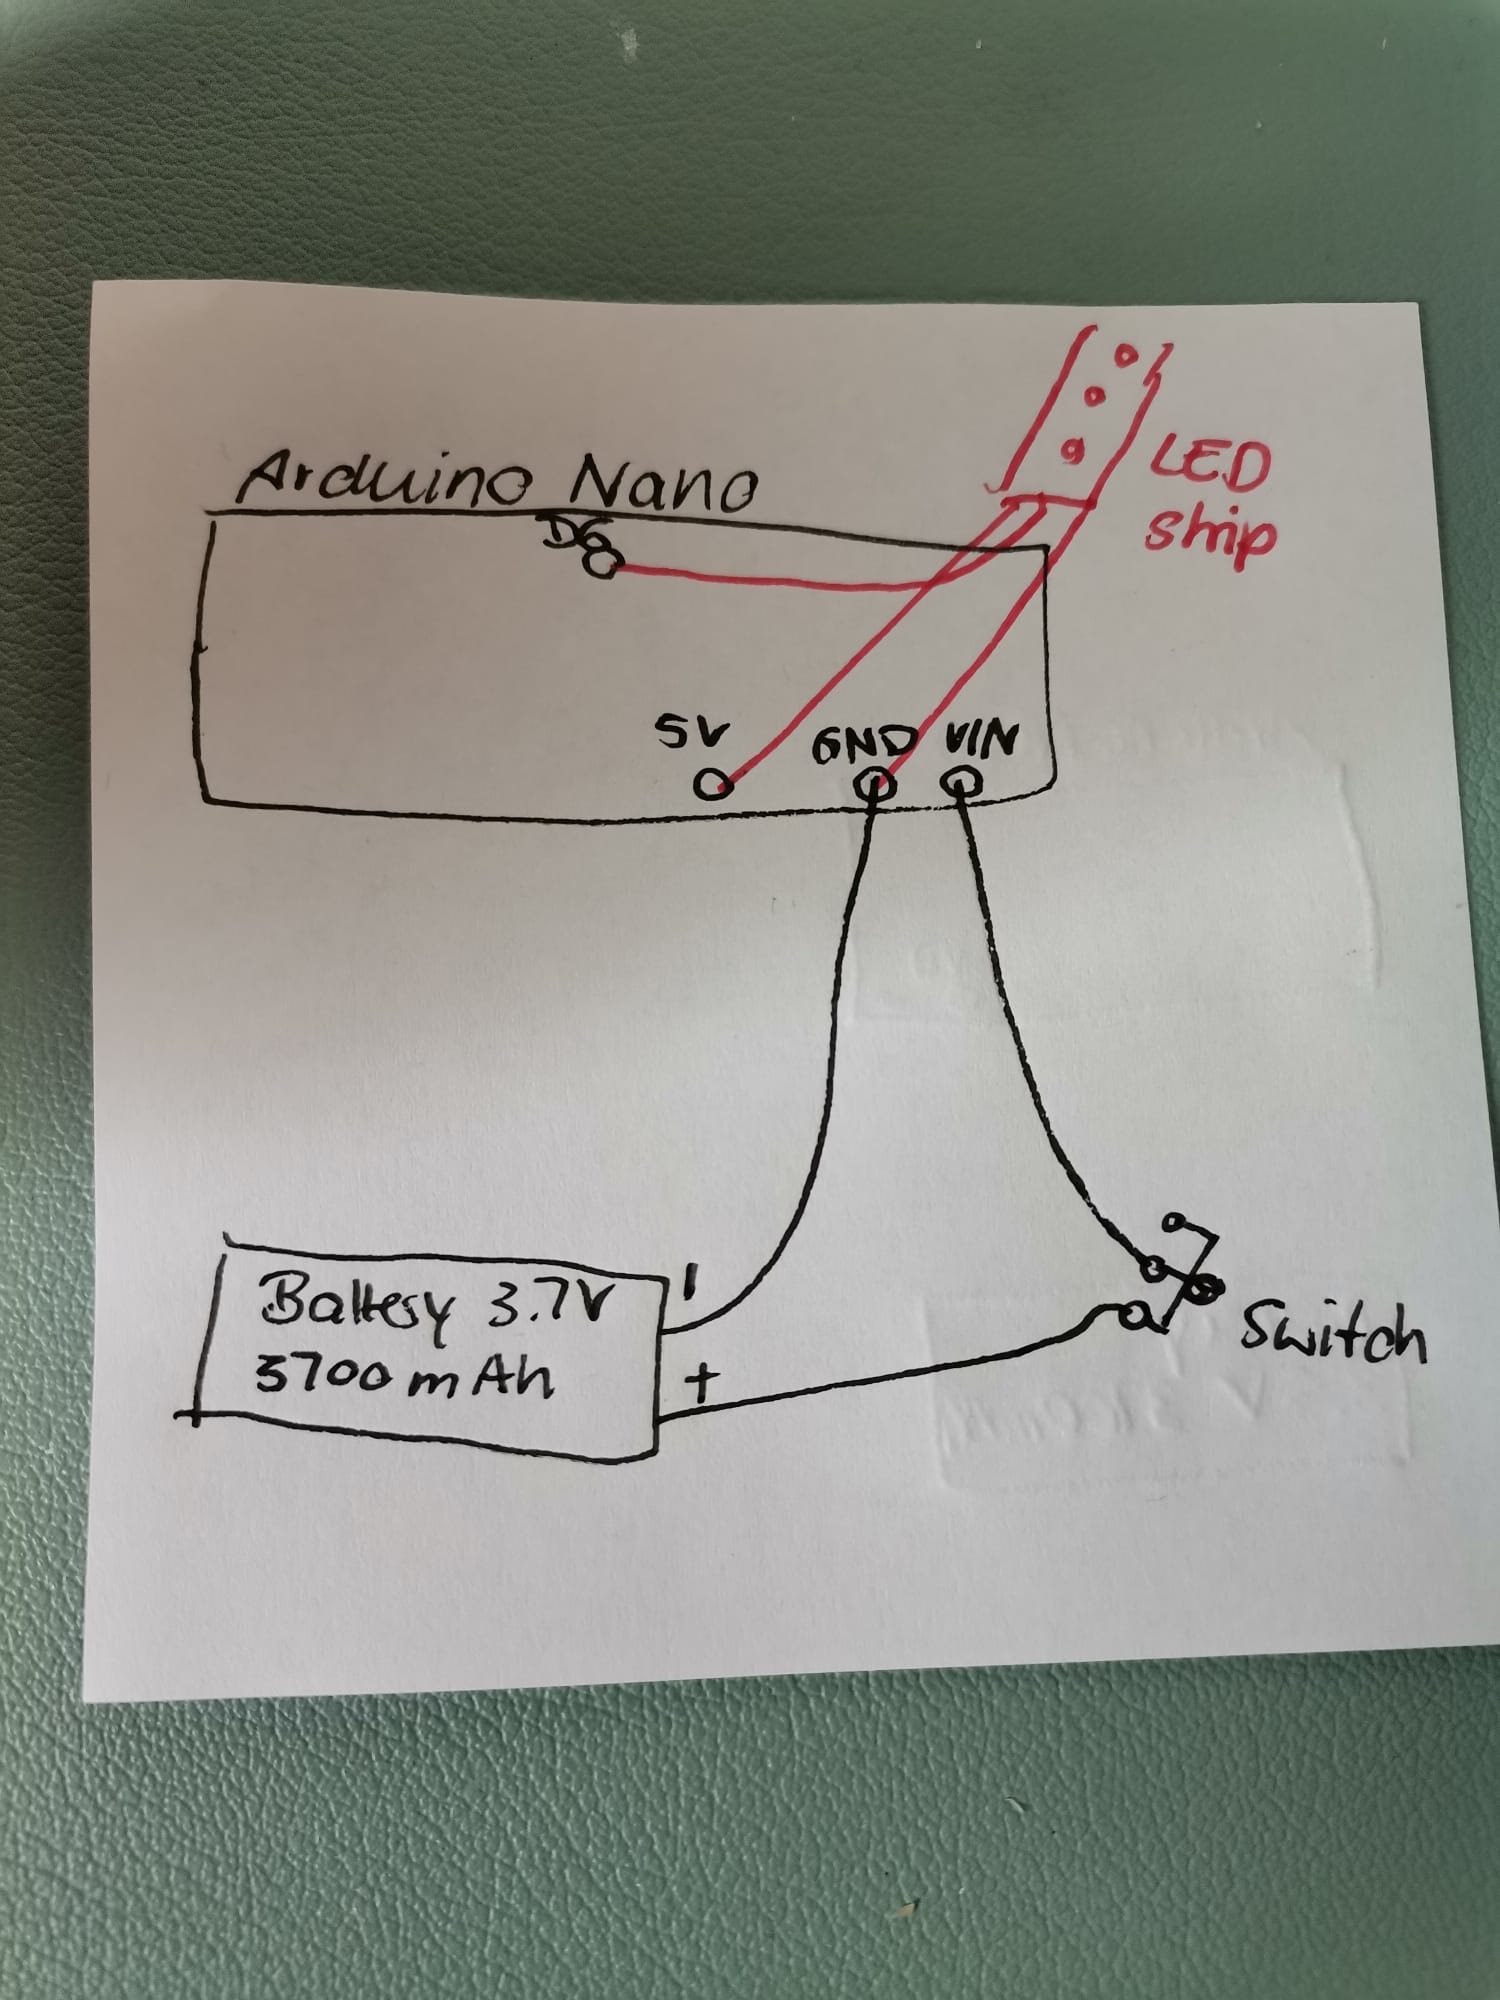 Arduino Nano
D6
LED
strip
5V
GND
VIN
Battery 3.7V
3700 mAh
-
+
Switch